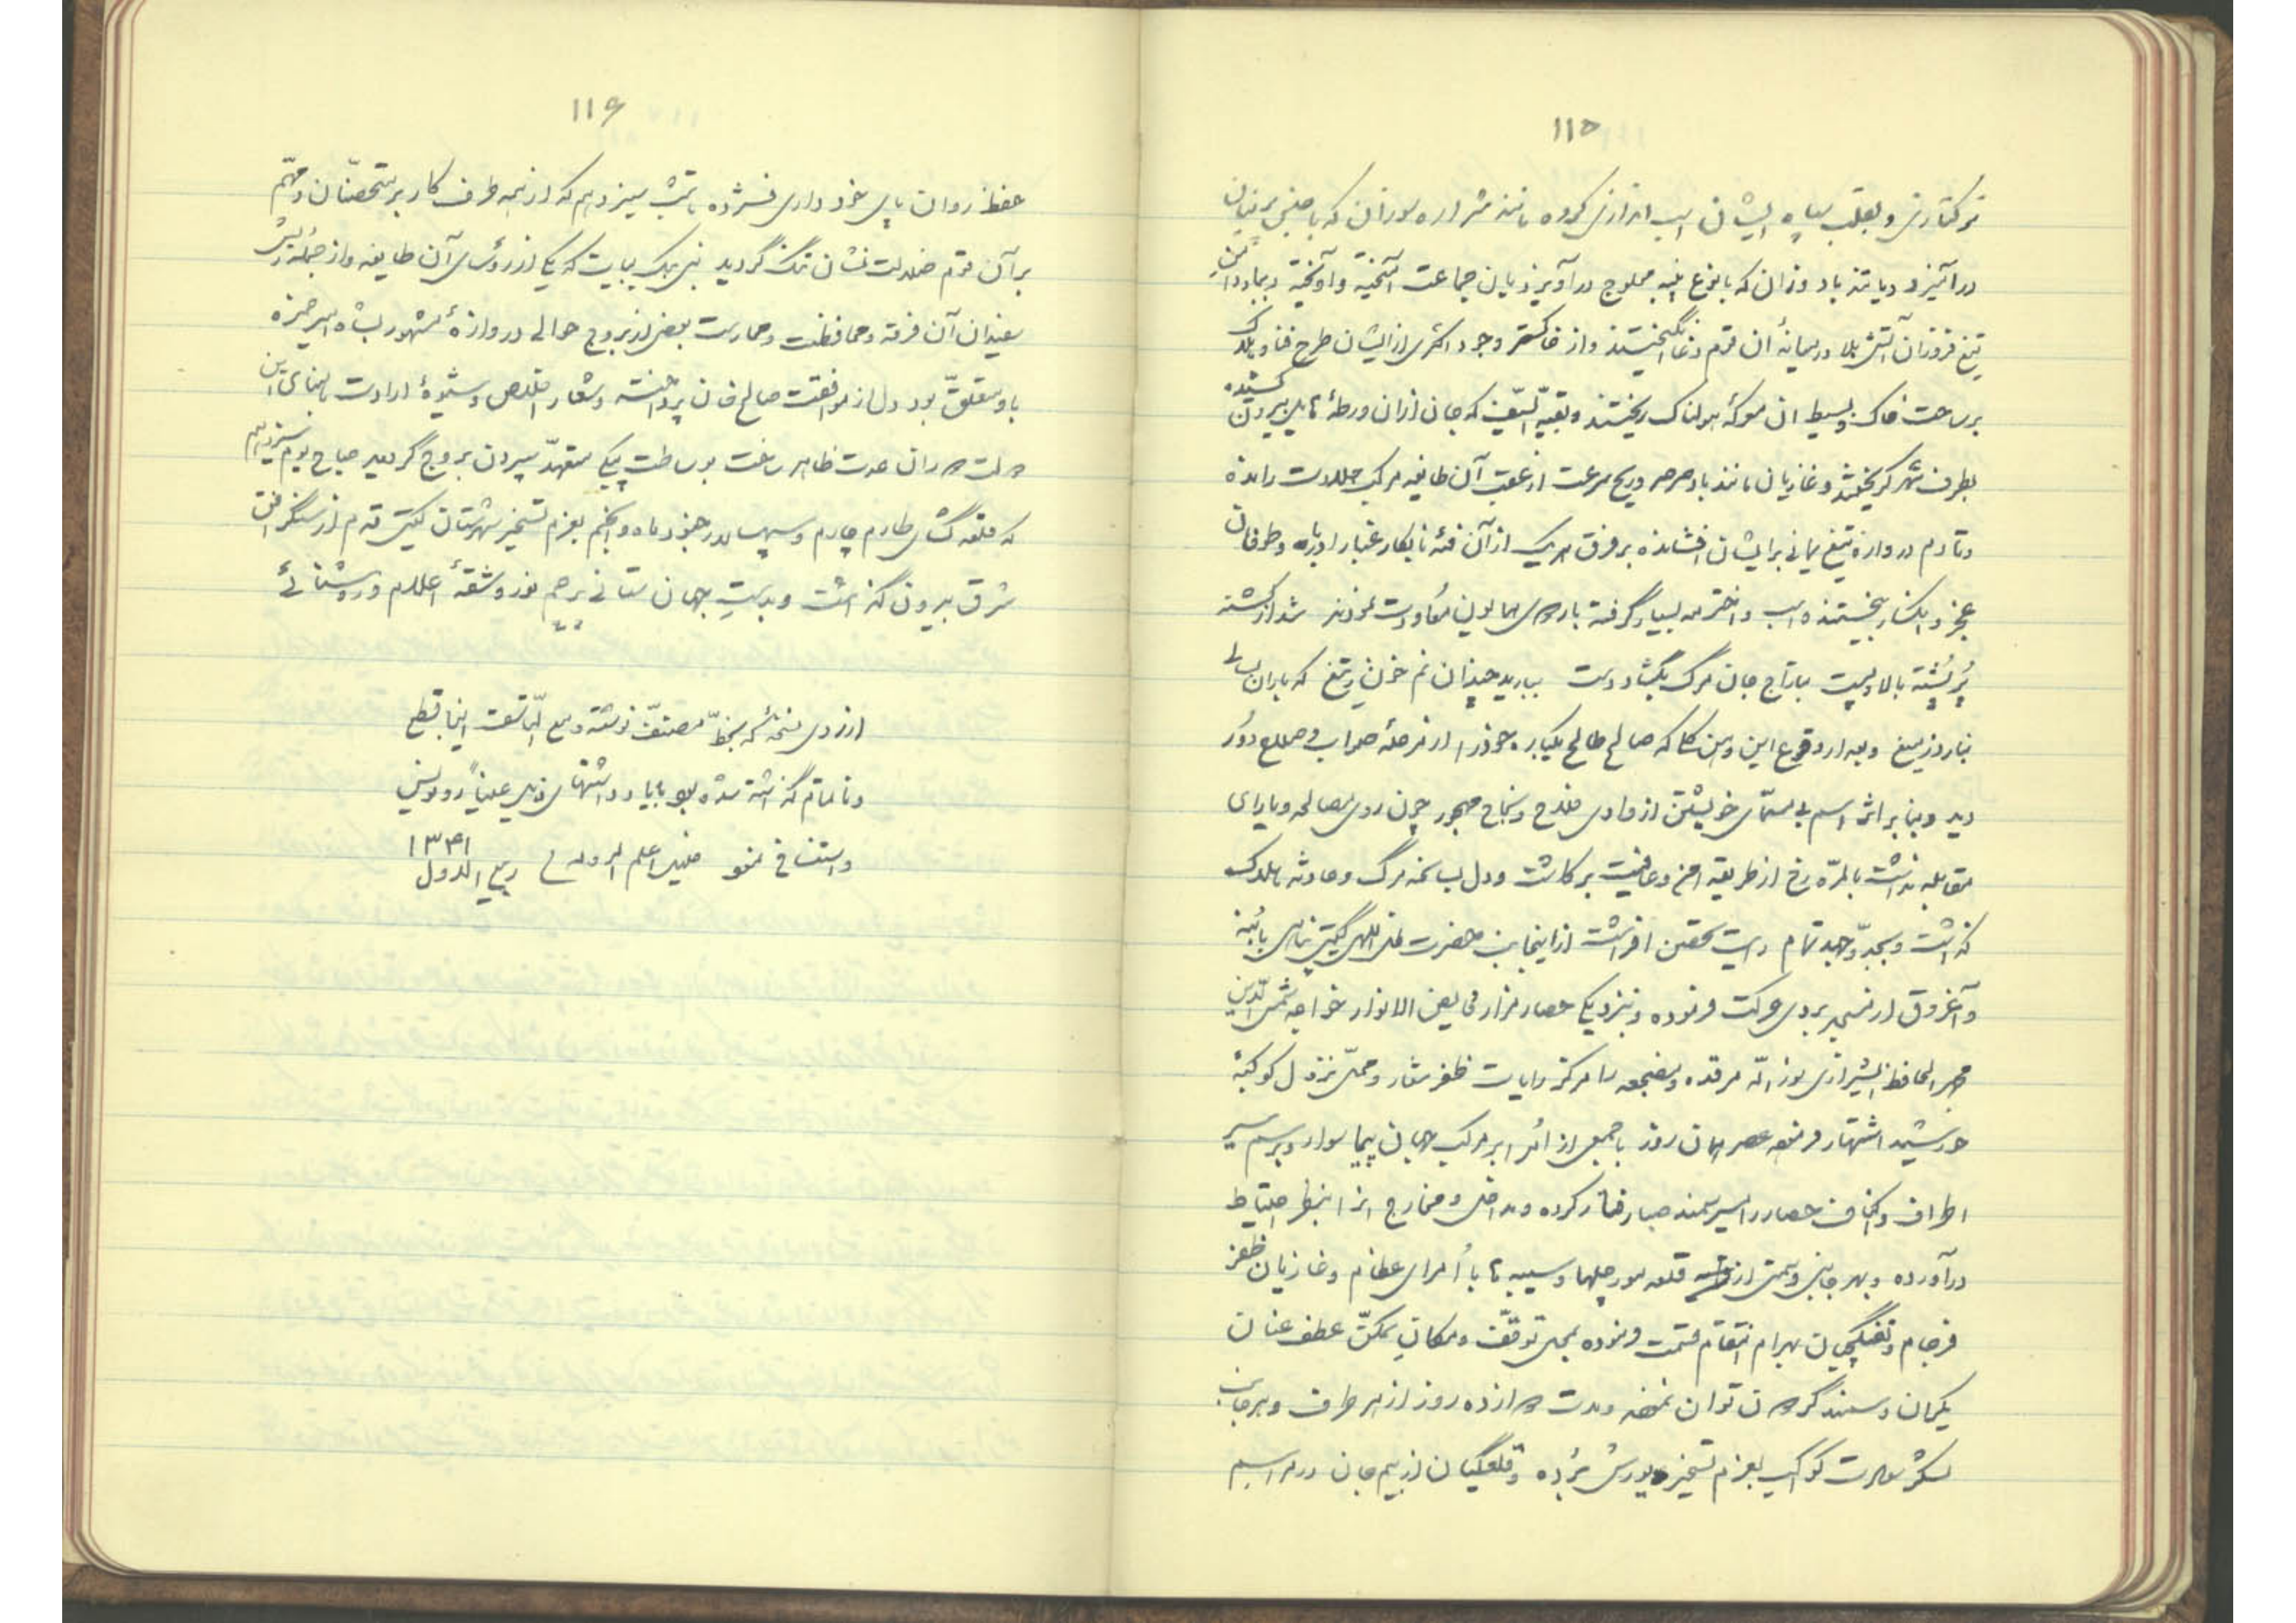 ۱۱۵
ترکتازی و بقلب سپاه ایشان اسب اندازی کرده مانند شراره سوزان که با جنس پرنیان
درآمیزد و یا تند باد وزان که با نوع پنبه محلوج درآویزد بان جماعت آمیخته و آویخته و بباد دامن
تیغ فروزان آتش بلا در میانهٔ آن قوم دغا انگیختند و از خاکستر وجود اکثری از ایشان طرح فنا و هلاک
بر ساحت خاک و بسیط آن معرکهٔ هولناک ریختند و بقیة السیف که جان از آن ورطهٔ هایل بیرون کشیده
بطرف شهر گریختند و غازیان مانند باد صرصر و ریح سرعت از عقب آن طایفه مرکب جلادت رانده
و تا دم دروازه تیغ یمانی بر ایشان افشانده بر فرق هر یک از آن فئهٔ نابکار غبار ادبار و طوفان
عجز و انکسار بیختند و اسب و اختر مه بسیار گرفته باردوی همایون معاودت نمودند شد از کشته
پر پشته بالا و پست بتاراج جان مرگ بگشاد دست ببارید چندان نم خون ز تیغ که باران بسالی
نبارد ز میغ و بعد از وقوع این و من کلا که صالح طالح یکباره خود را از مرحلهٔ صواب و صلاح دور
دید و بنابر اثر اسم بی مسمّای خویشتن از وادی فلاح و نجاح مهجور چون روی مصالحه و یارای
مقابله نداشت بالمرّه رخ از طریقه امن و عافیت برکاشت و دل بسانحه مرگ و حادثه هلاک
گذاشت و بجدّ و جهد تمام رایت تحصّن افراشت از اینجانب حضرت ظل اللهی گیتی پناهی با بُنه
و آغروق از مسجد بردی حرکت فرموده و نزدیک حصار مزار فیض الانوار خواجه شمس الدّین
محمد الحافظ الشیرازی نوّر الله مرقده و مضجعه را مرکز رایات ظفر شعار و محلّ نزول کوکبهٔ
خورشید اشتهار فرموده عصر همان روز با جمعی از امرا بر مرکب جهان پیما سوار و برسم سیر
اطراف و اکناف حصار را سیر سمند صبا رفتار کرده و مداخل و مخارج آنرا بنظر احتیاط
درآورده و بهر جانبی و سمتی از قلعه مورچلها و سیبه ها با اُمرای عظام و غازیان ظفر
فرجام و تفنگچیان بهرام انتقام قسمت فرموده بمحل توقّف و مکان تمکّن عطف عنان
یکران و سمند گردون توان نموده و مدت دوازده روز از هر طرف و هر جانب
لشکر نصرت کواکب بعزم تسخیر یورش بُرده و قلعگیان از بیم جان در مراسم
۱۱۶
حفظ روان پای خود داری فشرده تا شب سیزدهم که از همه طرف کار بر متحصّنان و مهمّ
بر آن قوم ضلالت نشان تنگ گردید بیات که یکی از رؤسای آن طایفه و از جمله ریش
سفیدان آن فرقه و محافظت و حمارست بعضی از بروج حوالی دروازهٔ مشهور بشاه امیر حمزه
باو متعلّق بود دل از موافقت صالح خان پرداخته و شعار اخلاص و شیوهٔ ارادت
دولت مداران حضرت ظاهر ساخت بوساطت پیکی متعهد سپردن بروج گردید صباح یوم سیزدهم
که قلعه گشای طارم چارم و سپهسالار جنود ماه و انجم بعزم تسخیر شهرستان گیتی قدم از سنگر افق
شرق بیرون گذاشت و بدست جهان ستانی پرچم نور و شقهٔ اعلام روشنائی
از روی نسخهٔ که بخطّ مصنّف نوشته و مع التأسف اینجا قطع
و ناتمام گذاشته شده بود با یادداشتهای ذیل عیناً رونویس
و استنساخ نمود ربیع الاول ۱۳۴۱